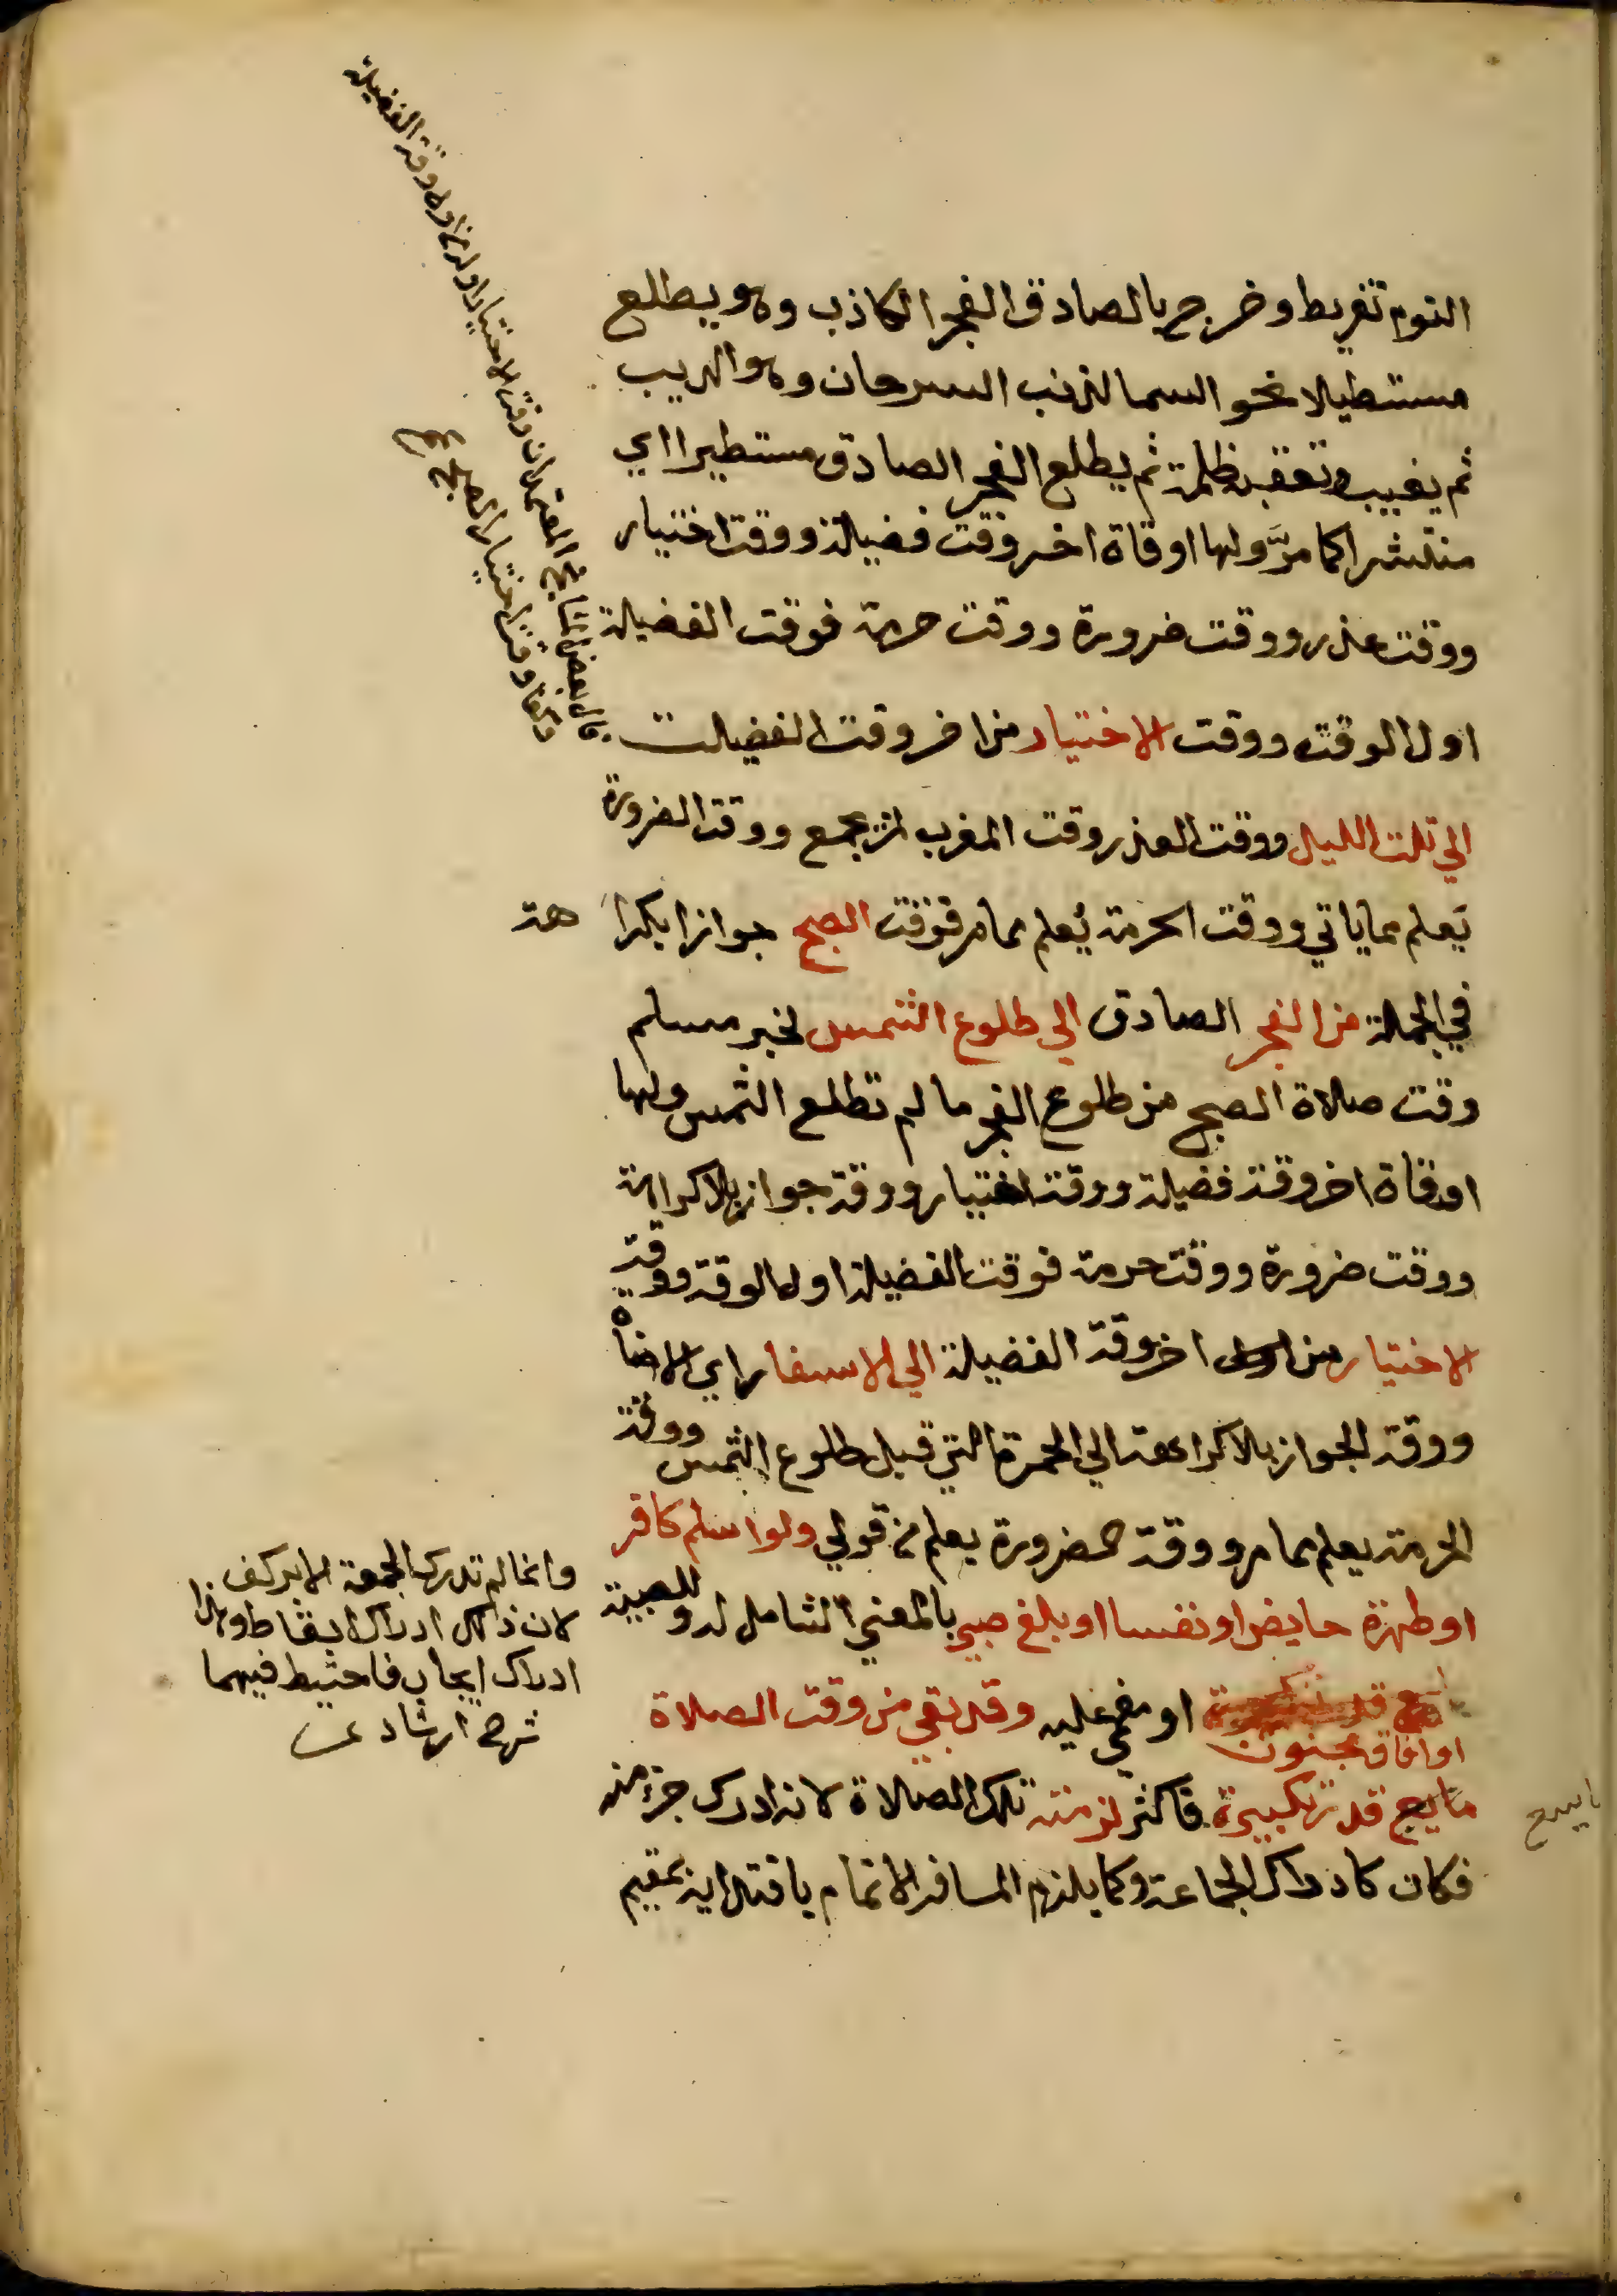 النوم تفريط وخرج بالصادق الفجر الكاذب وهو يطلع
مستطيلا نحو السما لذنب السرحان وهو الذيب
ثم يغيب وتعقبه ظلمة ثم يطلع الفجر الصادق مستطيرا اي
منتشرا كما مرّ ولها اوقاة اخر وقت فضيلة ووقت اختيار
ووقت عذر ووقت ضرورة ووقت حرمة فوقت الفضيلة
اول الوقت ووقت الاختيار من اخر وقت الفضيلت
الي ثلث الليل ووقت العذر وقت المغرب لمن يجمع ووقت الضرورة
يَعلم مما ياتي ووقت الحرمة يُعلم مما مر فوقت الصبح جوازا بكرا هة
في الجملة من الفجر الصادق الي طلوع الشمس لخبر مسلم
وقت صلاة الصبح من طلوع الفجر ما لم تطلع الشمس ولها
اوقاة اخر وقت فضيلة ووقت اختيار ووقت جواز بلا كراهة
ووقت ضرورة ووقت حرمة فوقت الفضيلة اول الوقت ووقت
الاختيار من اخر وقت الفضيلة الي الاسفار اي الاضأه
ووقت الجواز بلا كراهة الي الحمرة التي قبل طلوع الشمس ووقت
الحرمة يعلم مما مر ووقت الضرورة يعلم من قولي ولو اسلم كافر
او طهرة حايض او نفسا او بلغ صبي بالمعني الشامل له وللصبية
او افاق مجنون او مغمي عليه وقد بقي من وقت الصلاة
ما يسع قدر تكبيرة فاكثر لزمته تلك الصلاة لانه ادرك جزء منه
فكان كادراك الجماعة وكما يلزم المسافر الاتمام باقتدايه بمقيم
قال بعض مشايخ المعتمد ان وقت الاختيار اوله من اوله ووقت الفضيلة
وقت اختيار
وانما لم تدرك الجمعة الا بركعة
لان ذاك ادراك اسقاط وهذا
ادراك ايجاب فاحتيط فيهما
شرح ارشاد